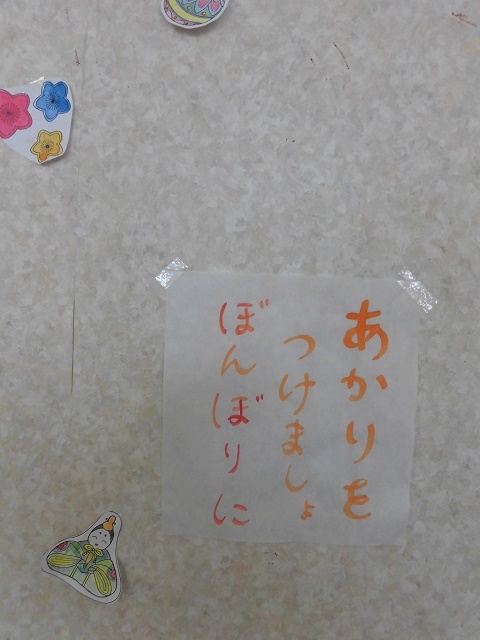 あかりを
つけましょ
ぼんぼりに